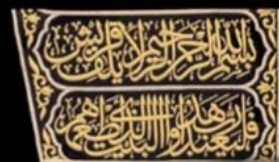 بسم الله الرحمن الرحيم لايلف قريش
فليعبدوا رب هذا البيت الذي اطعمهم